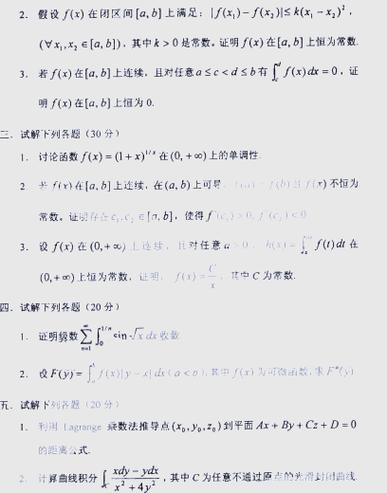 2. 假设 f(x) 在闭区间 [a, b] 上满足: |f(x₁) − f(x₂)| ≤ k(x₁ − x₂)²,
(∀x₁, x₂ ∈ [a, b]), 其中 k > 0 是常数。证明 f(x) 在 [a, b] 上恒为常数.
3. 若 f(x) 在 [a, b] 上连续, 且对任意 a ≤ c < d ≤ b 有 ∫_c^d f(x) dx = 0, 证
明 f(x) 在 [a, b] 上恒为 0.
三、试解下列各题 (30 分)
1. 讨论函数 f(x) = (1 + x)^{1/x} 在 (0, +∞) 上的单调性.
2 若 f(x) 在 [a, b] 上连续, 在 (a, b) 上可导, f(a) = f(b) 且 f(x) 不恒为
常数。证明存在 c₁, c₂ ∈ [a, b], 使得 f'(c₁) > 0, f'(c₂) < 0
3. 设 f(x) 在 (0, +∞) 上连续, 且对任意 a > 0, h(x) = ∫ f(t) dt 在
(0, +∞) 上恒为常数, 证明, f(x) = C/x, 其中 C 为常数.
四、试解下列各题 (20 分)
1. 证明级数 ∑_{n=1}^∞ ∫_0^{1/n} sin √x dx 收敛
2. 设 F(y) = ∫_a^b f(x)|y − x| dx (a < b), 其中 f(x) 为可微函数, 求 F''(y)
五、试解下列各题 (20 分)
1. 利用 Lagrange 乘数法推导点 (x₀, y₀, z₀) 到平面 Ax + By + Cz + D = 0
的距离公式.
2. 计算曲线积分 ∫_C (xdy − ydx)/(x² + 4y²), 其中 C 为任意不通过原点的光滑封闭曲线.